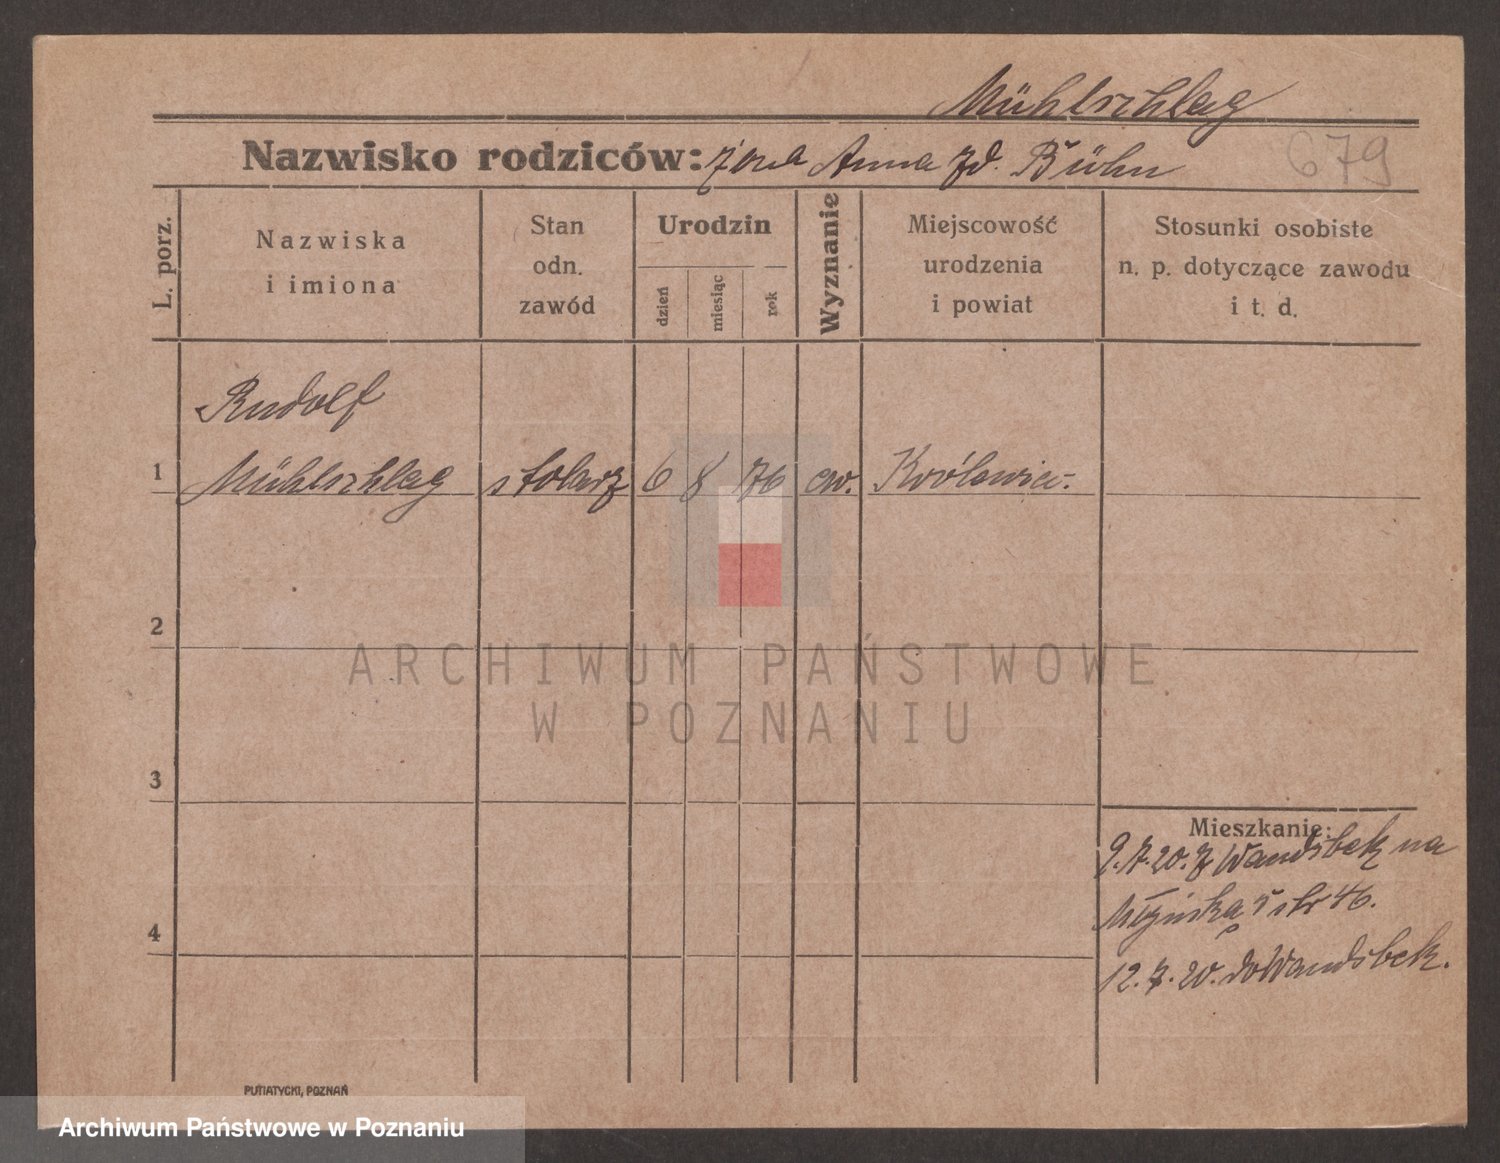 Mühlschlag
Nazwisko rodziców: żona Anna zd. Bühn
679
L. porz.
Nazwiska
i imiona
Stan
odn.
zawód
Urodzin
dzień
miesiąc
rok
Wyznanie
Miejscowość
urodzenia
i powiat
Stosunki osobiste
n. p. dotyczące zawodu
i t. d.
Rudolf
1 Mühlschlag stolarz 6 8 76 ew. Królewiec.
2
3
4
Mieszkanie:
9.7.20. z Wandsbek na
str 46.
12.7.20. do Wandsbek.
PUTIATYCKI, POZNAŃ
ARCHIWUM PAŃSTWOWE
W POZNANIU
Archiwum Państwowe w Poznaniu